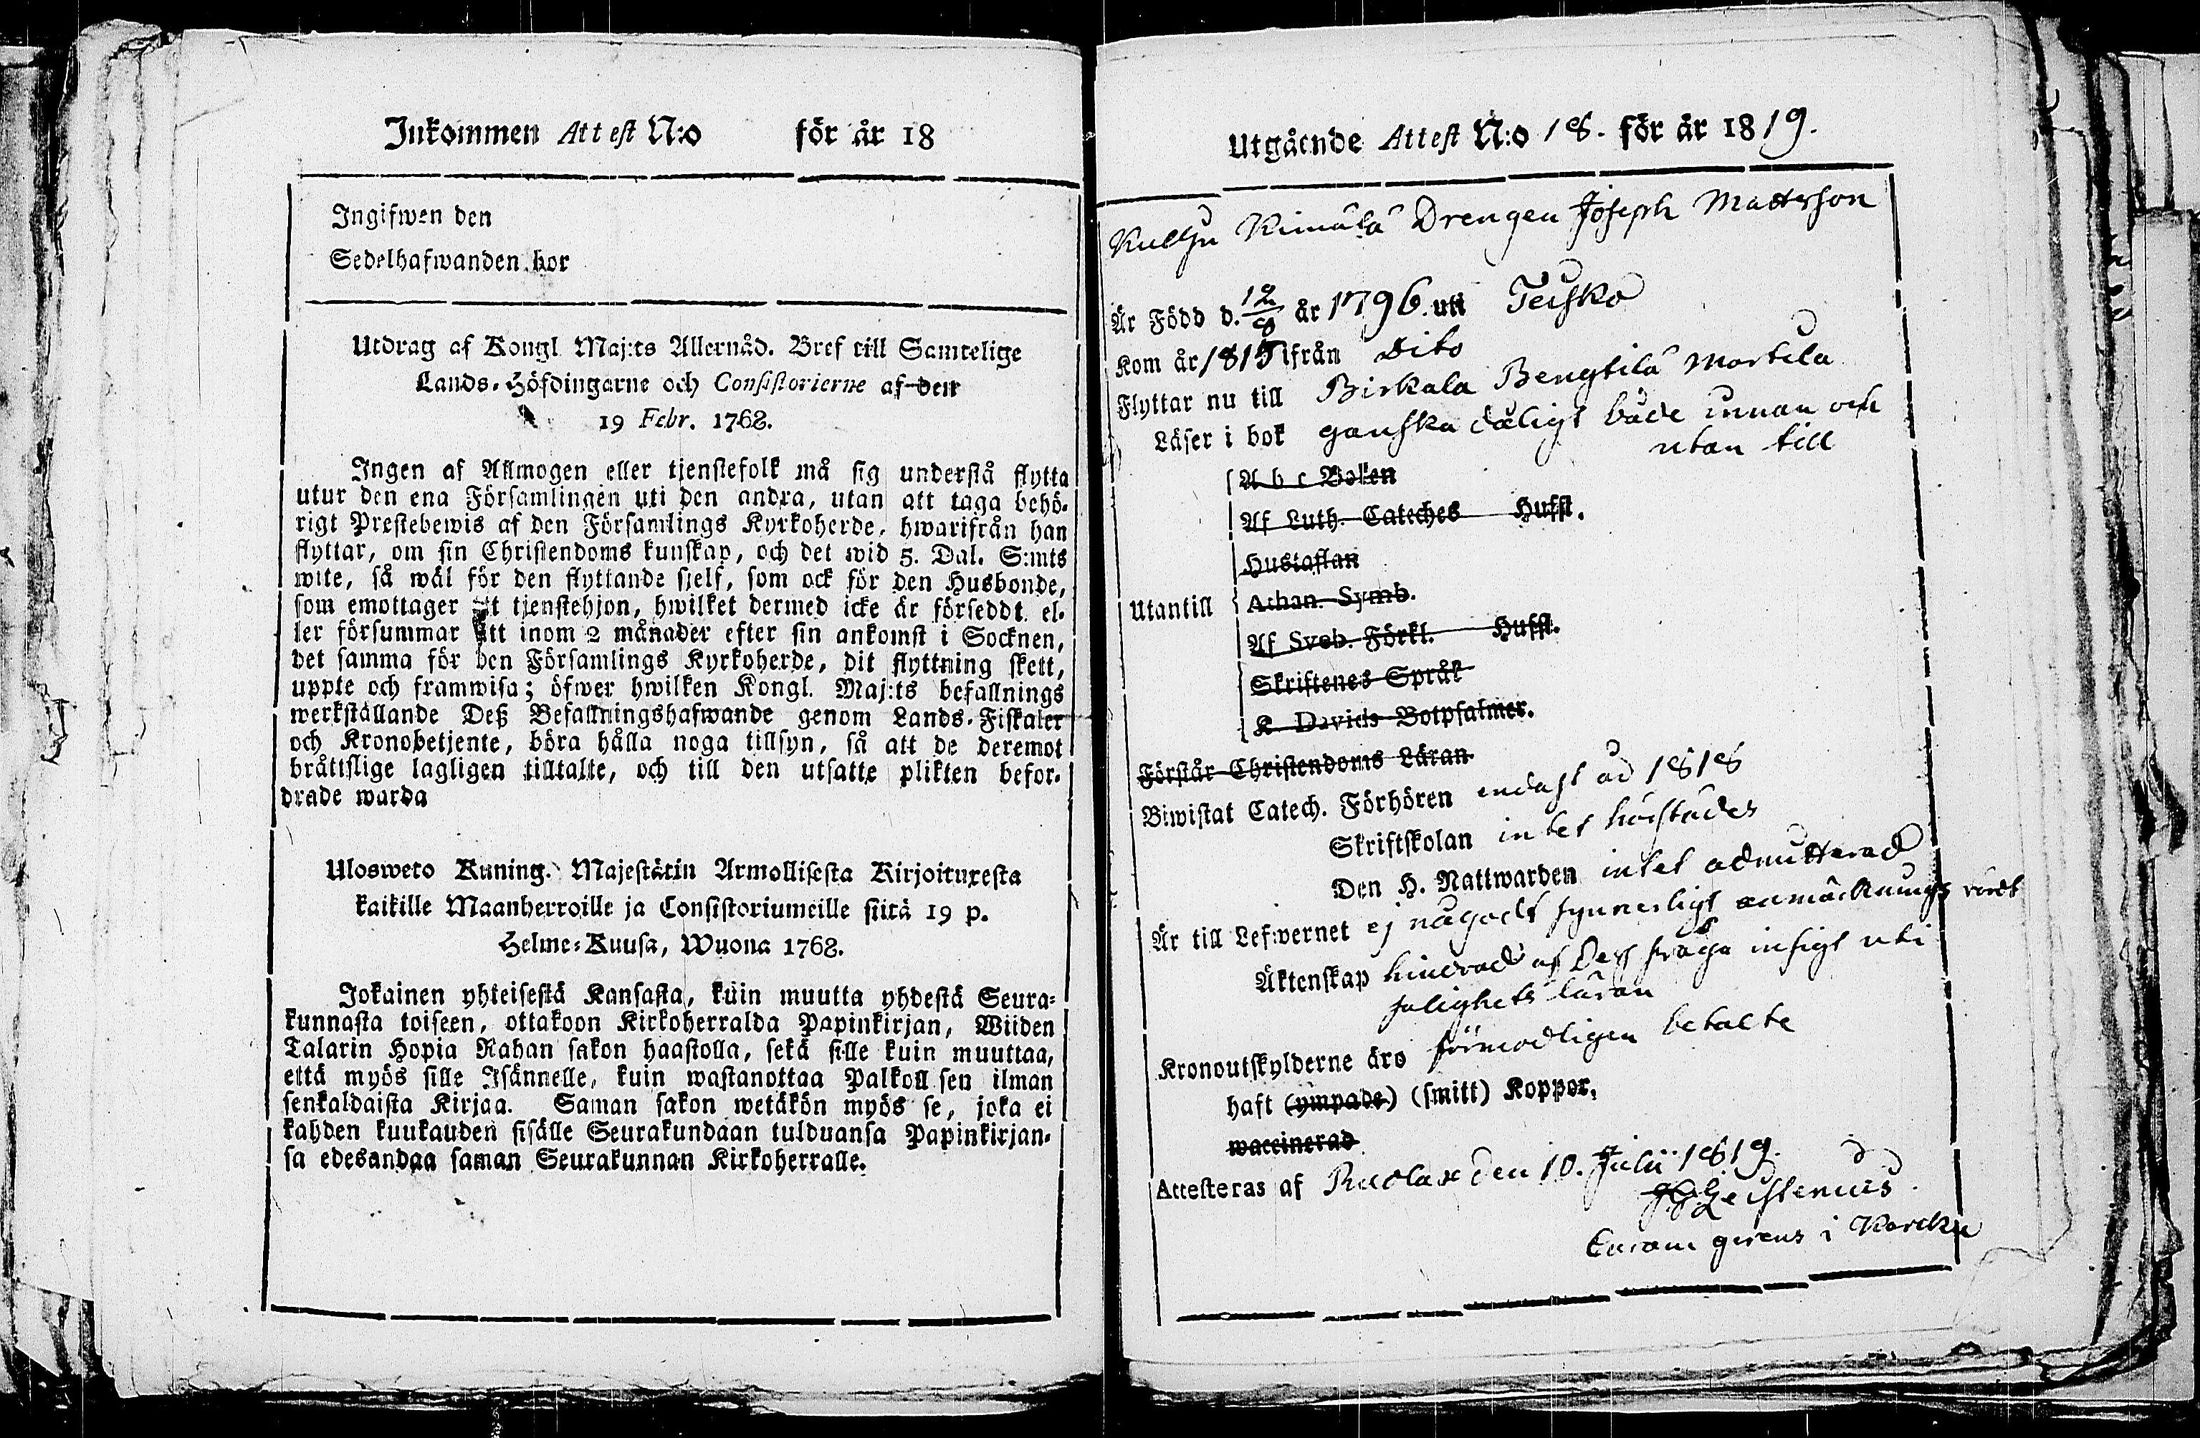 Inkommen Attest N:o för år 18
Ingifwen den
Sedelhafwanden bor
Utdrag af Kongl Maj:ts Allernåd. Bref till Samtelige
Lands-Höfdingarne och Consistorierne af den
19 Febr. 1768.
Ingen af Allmogen eller tjenstefolk må sig understå flytta
utur den ena Församlingen uti den andra, utan att taga behö-
rigt Prestebewis af den Församlings Kyrkoherde, hwarifrån han
flyttar, om sin Christendoms kunskap, och det wid 5. Dal. S:mts
wite, så wäl för den flyttande sjelf, som ock för den Husbonde,
som emottager ett tjenstehjon, hwilket dermed icke är försedt. el-
ler försummar att inom 2 månader efter sin ankomst i Socknen,
det samma för den Församlings Kyrkoherde, dit flyttning skett,
uppte och framwisa; öfwer hwilken Kongl. Maj:ts befallnings
werkställande Deß Befallningshafwande genom Lands-Fiskaler
och Kronobetjente, böra hålla noga tillsyn, så att de deremot
bråttslige lagligen tilltalte, och till den utsatte plikten befor-
drade warda
Ulosweto Kuning. Majestätin Armollisesta Kirjoituxesta
kaikille Maanherroille ja Consistoriumeille siitä 19 p.
Helme-Kuusa, Wuona 1768.
Jokainen yhteisestä Kansasta, kuin muutta yhdestä Seura-
kunnasta toiseen, ottakoon Kirkoherralda Papinkirjan, Wiiden
Talarin Hopia Rahan sakon haastolla, sekä sille kuin muuttaa,
että myös sille Isännelle, kuin wastanottaa Palkollisen ilman
senkaldaista Kirjaa. Saman sakon wetäkön myös se, joka ei
kahden kuukauden sisälle Seurakundaan tulduansa Papinkirjan-
sa edesandaa saman Seurakunnan Kirkoherralle.
Utgående Attest N:o 18. för år 1819.
Kullju Kimålå Drengen Joseph Mattsson
Är Född d. 12/9 år 1796. uti Teisko
Kom år 1815 ifrån Dito
Flyttar nu till Birkala Bengtilä Martila
Läser i bok ganska dåligt både innan och
utan till
A b c Boken
Af Luth. Cateches Hufst.
Hustaflan
Utantill Athan. Symb.
Af Sveb. Förkl. Hufst.
Skriftenes Språk
K Davids Botpsalmer.
Förstår Christendoms Läran
Biwistat Catech. Förhören endast åd 1818
Skriftskolan intet härstädes
Den H. Nattwarden intet admitterad
Är till Lefwernet ej någodt synnerligt anmärknings värdt
Äktenskap hindrad af Dess svaga insigt uti
salighets läran
Kronoutskylderne äro förmodligen betalte
haft (ympade) (smitt) Koppor.
waccinerad
Attesteras af den 10. Julii 1819.
Curam gerens i Karcku